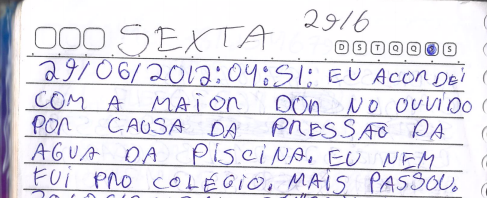 29/6
SEXTA
D S T Q Q S S
29/06/2012:04:51: EU ACORDEI
COM A MAIOR DOR NO OUVIDO
POR CAUSA DA PRESSÃO DA
AGUA DA PISCINA. EU NEM
FUI PRO COLÉGIO. MAIS PASSOU.